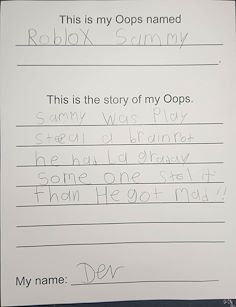 This is my Oops named
Roblox Sammy
This is the story of my Oops.
Sammy was Play
steal a brainrot
he had La graday
some one stol it
than He got mad!!
My name: Dev